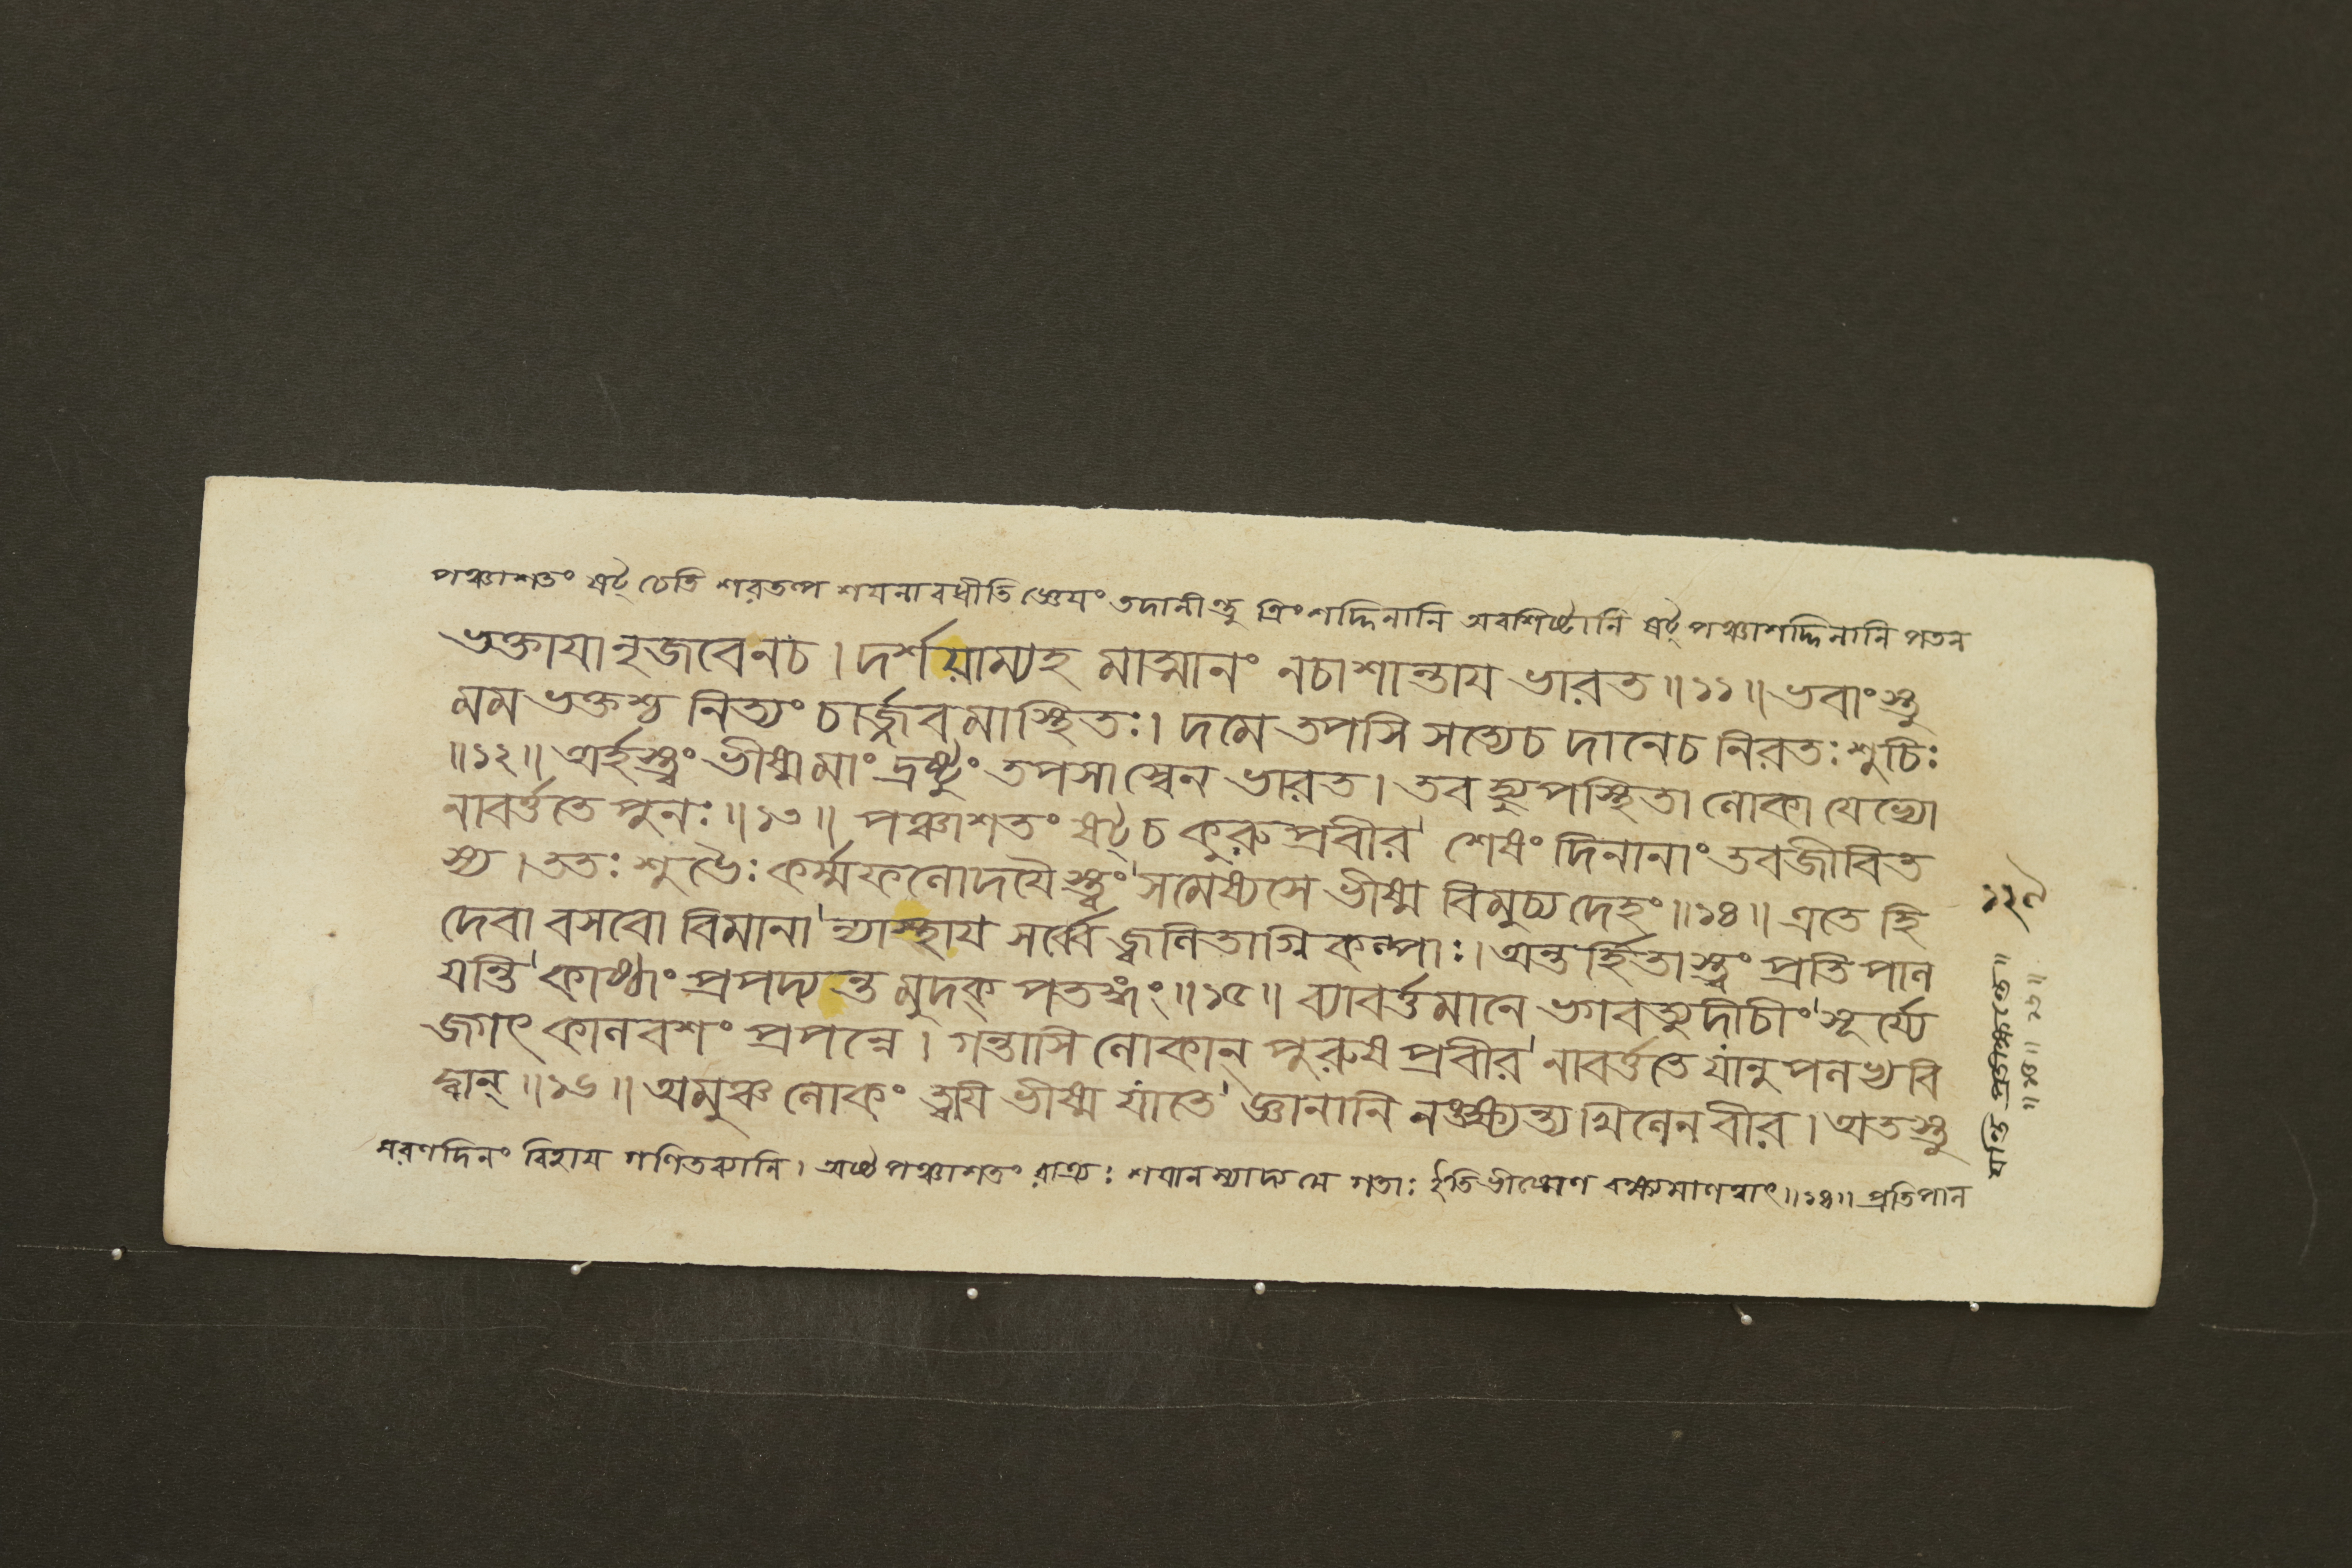 পঞ্চাশতং ষট্ চেতি শরতল্প শযনাবধীতি জ্ঞেযং তদানীন্তু ত্রিংশদ্দিনানি অবশিষ্টানি ষট্ পঞ্চাশদ্দিনানি পতন
ভক্তাযানৃজবেনচ । দর্শয়াম্যহ মাত্মানং নচাশান্তায ভারত ॥ ১১ ॥ ভবাংস্তু
মম ভক্তশ্চ নিত্যং চার্জ্জবমাস্থিতঃ । দমে তপসি সত্যেচ দানেচ নিরতঃ শুচিঃ
॥ ১২ ॥ অর্হস্ত্বং ভীষ্মমাং দ্রষ্টুং তপসা স্বেন ভারত । তব হ্যুপস্থিতা লোকা যেভ্যো
নাবর্ত্ততে পুনঃ ॥ ১৩ ॥ পঞ্চাশতং ষট্চ কুরুপ্রবীর' শেষং দিনানাং তবজীবিত
স্য । ততঃ শুভৈঃ কর্ম্মফলোদযৈস্ত্বং' সমেষ্যসে ভীষ্ম বিমুচ্য দেহং ॥ ১৪ ॥ এতে হি
দেবা বসবো বিমানা' ন্যাস্থায' সর্ব্বে জ্বলিতাগ্নিকল্পাঃ । অন্তর্হিতাস্ত্বং প্রতিপাল
যন্তি' কাষ্ঠাং প্রপদ্যন্ত মুদক্ পতঙ্গং ॥ ১৫ ॥ ব্যাবর্ত্তমানে ভগবত্যুদীচীং' সূর্য্যে
জগৎ কালবশং প্রপন্নে । গন্তাসি লোকান্ পুরুষপ্রবীর' নাবর্ত্ততে যানুপলভ্য বি
দ্বান্ ॥ ১৬ ॥ অমুঞ্চ লোকং ত্বযি ভীষ্ম যাতে' জ্ঞানানি নঙ্ক্ষ্যন্ত্যখিলেন বীর । অতস্তু
মরণদিনং বিহায গণিতব্যানি । অষ্টপঞ্চাশতং রাত্র্যঃ শযানস্যাদ্য মে গতাঃ ইতি ভীষ্মেণ বক্ষ্যমাণত্বাৎ ॥ ১৪ ॥ প্রতিপাল
যন্তি প্রতীক্ষন্তে ॥
॥ ১৫ ॥ ১৬ ॥